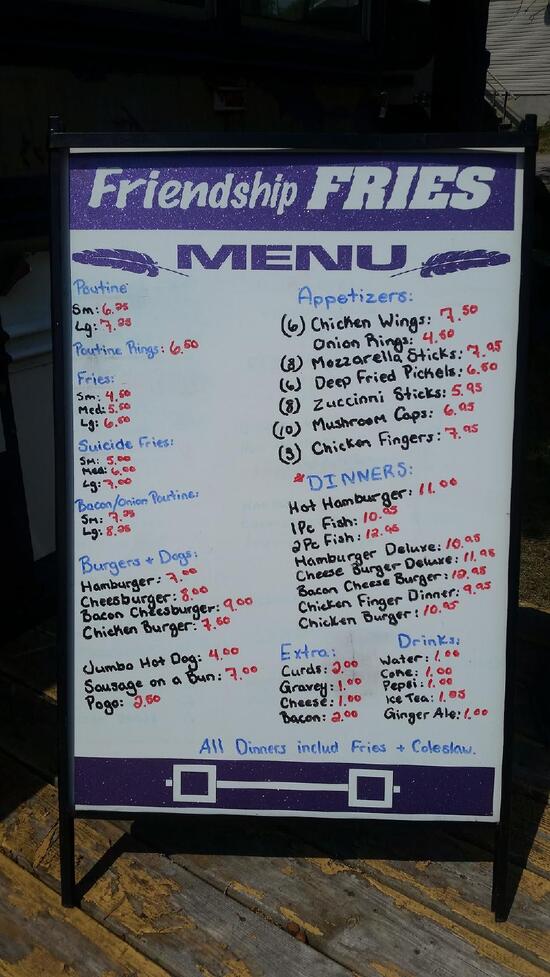 Friendship FRIES
MENU
Poutine
Sm: 6.25
Lg: 7.25
Poutine Rings: 6.50
Fries:
Sm: 4.50
Med: 5.50
Lg: 6.50
Suicide Fries:
Sm: 5.00
Med: 6.00
Lg: 7.00
Bacon/Onion Poutine:
Sm: 7.25
Lg: 8.25
Burgers + Dogs:
Hamburger: 7.00
Cheesburger: 8.00
Bacon Cheesburger: 9.00
Chicken Burger: 7.50
Jumbo Hot Dog: 4.00
Sausage on a Bun: 7.00
Pogo: 2.50
Appetizers:
(6) Chicken Wings: 7.50
Onion Rings: 4.50
(8) Mozzarella Sticks: 7.95
(6) Deep Fried Pickels: 6.50
(8) Zuccinni Sticks: 5.95
(10) Mushroom Caps: 6.95
(3) Chicken Fingers: 7.95
*DINNERS:
Hot Hamburger: 11.00
1Pc Fish: 10.95
2Pc Fish: 12.95
Hamburger Deluxe: 10.95
Cheese Burger Deluxe: 11.95
Bacon Cheese Burger: 12.95
Chicken Finger Dinner: 9.95
Chicken Burger: 10.95
Extra:
Curds: 2.00
Gravey: 1.00
Cheese: 1.00
Bacon: 2.00
Drinks:
Water: 1.00
Coke: 1.00
Pepsi: 1.00
Ice Tea:
Ginger Ale: 1.00
All Dinners includ Fries + Coleslaw.